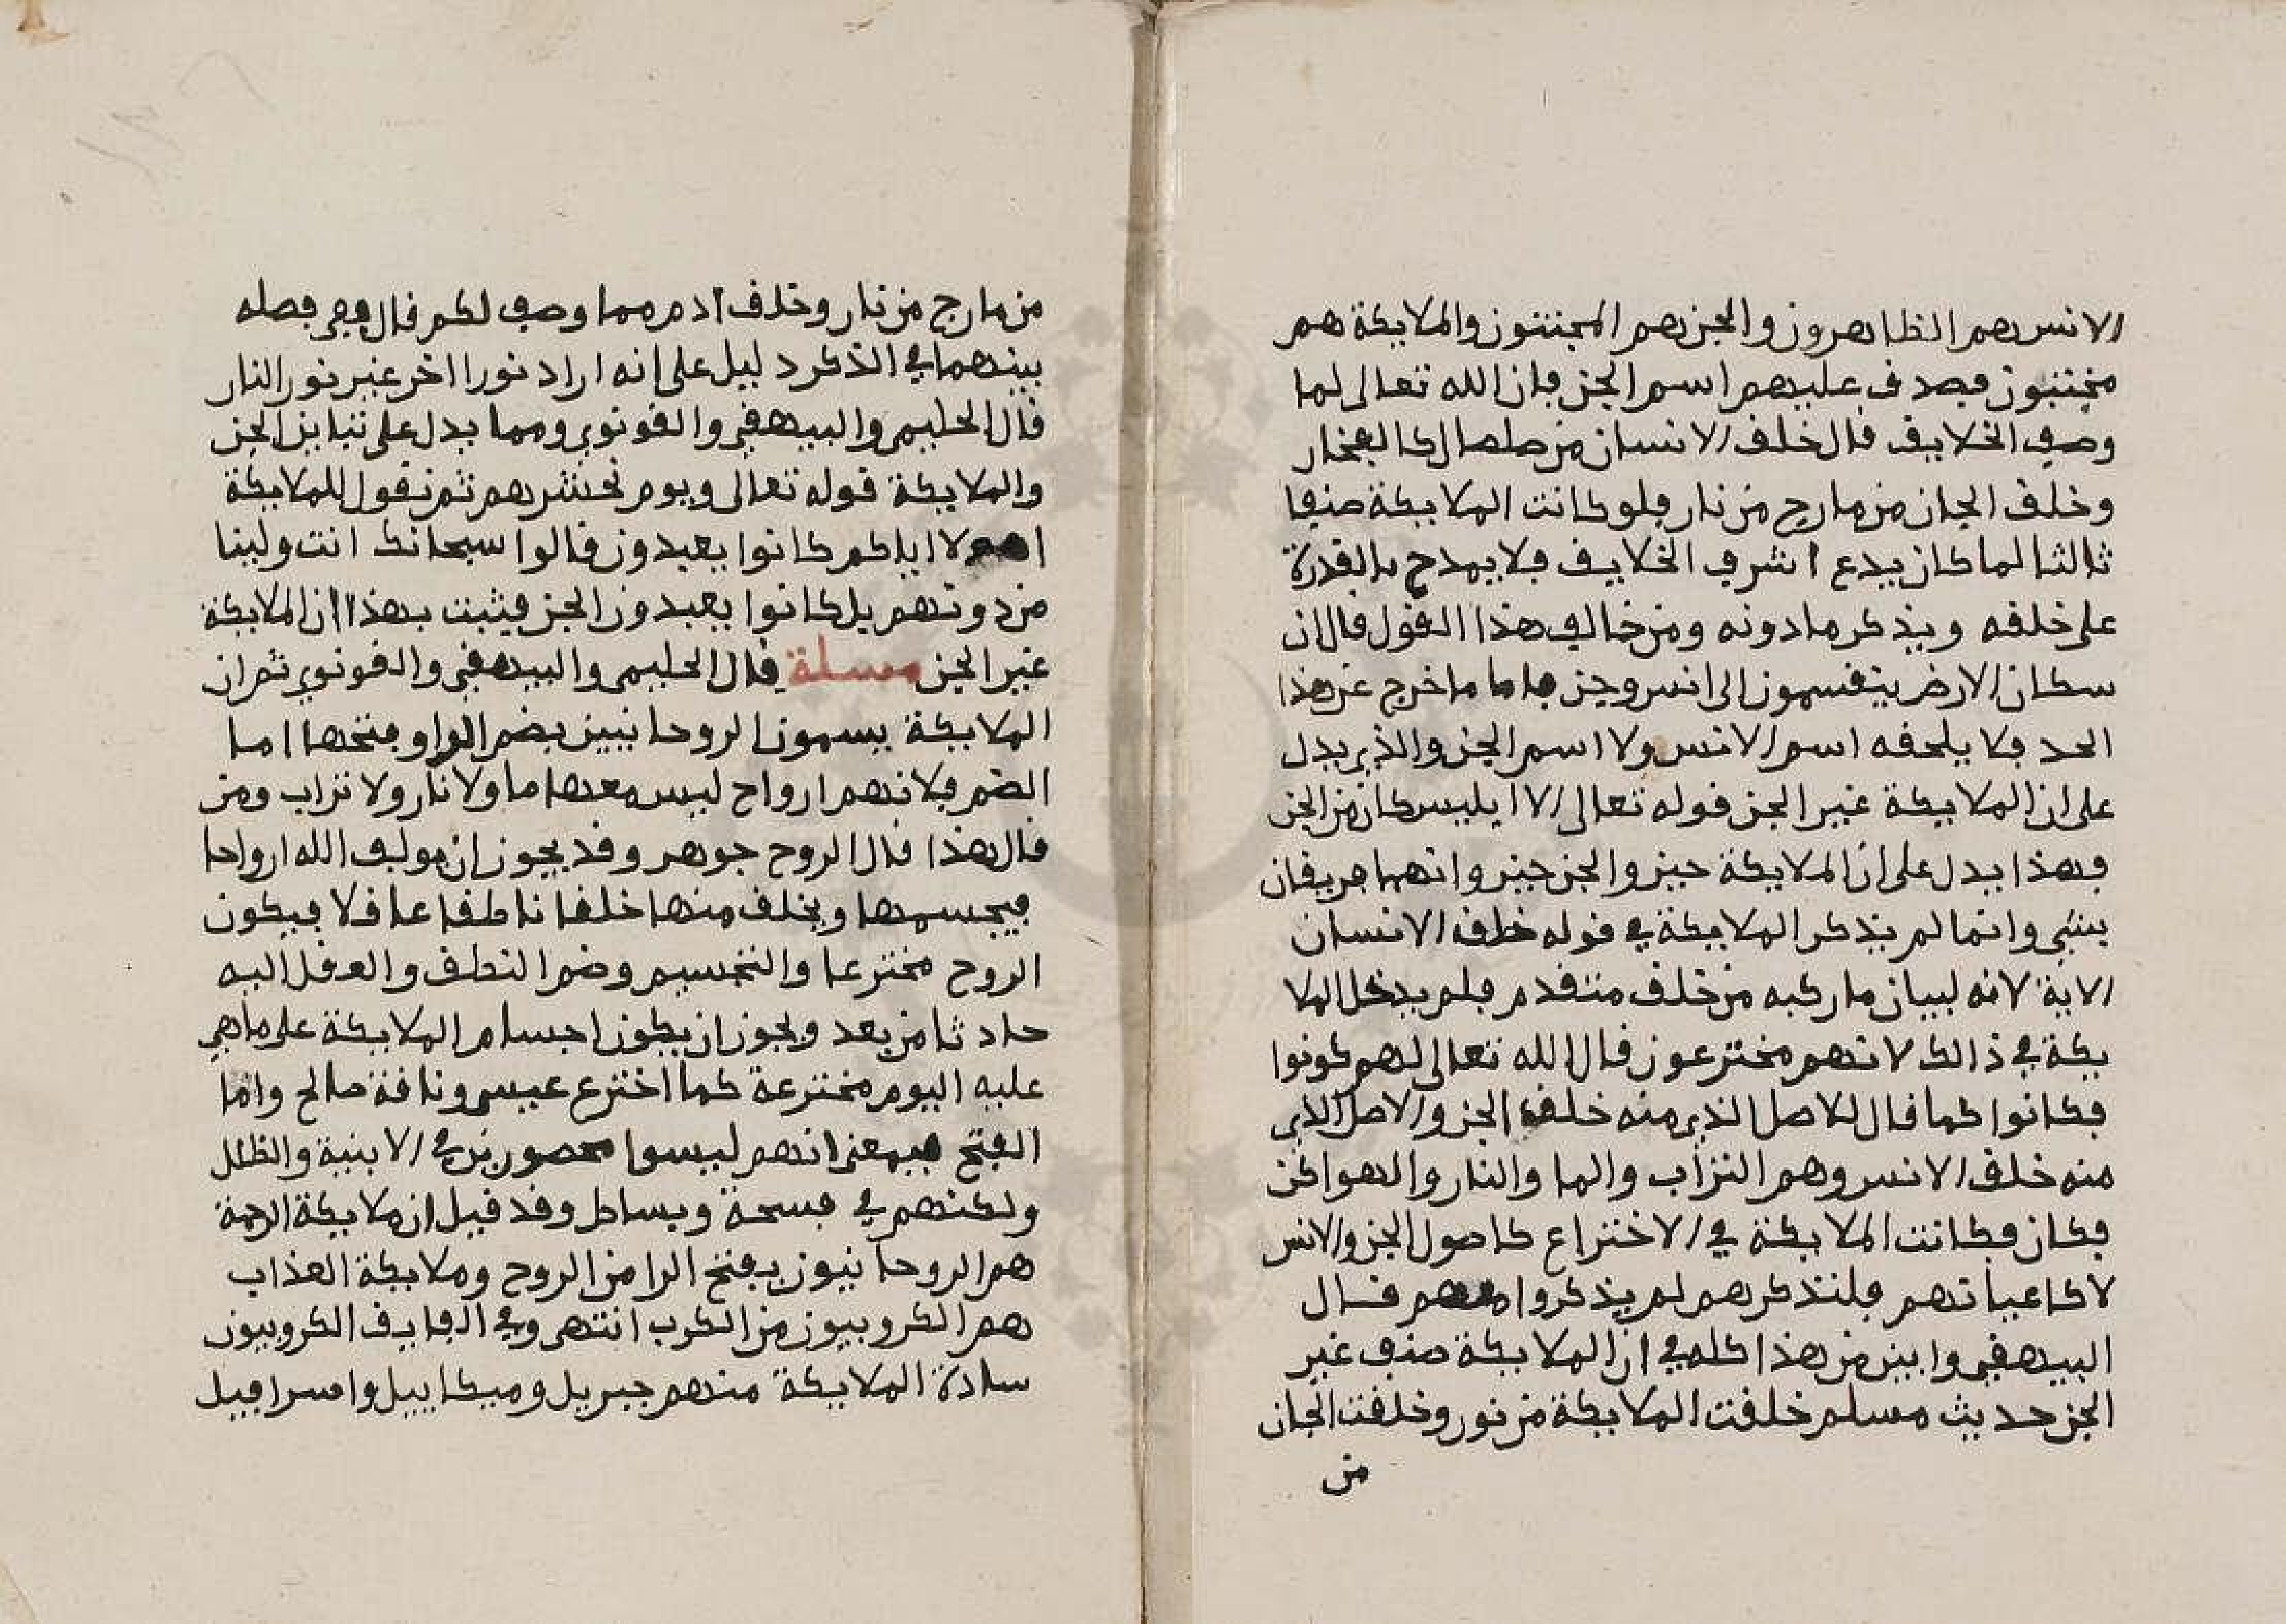 الانس هم الظاهرون والجن هم المجتنون والملايكة هم
مجتنبون فصدق عليهم اسم الجن فان الله تعالى لما
وصف الخلايق قال خلق الانسان من صلصال كالفخار
وخلق الجان من مارج من نار فلو كانت الملايكة صنفا
ثالثا لما كان يدع اشرف الخلايق فلا يمدح بالقدرة
على خلقه ويذكر ما دونه ومن خالف هذا القول قال ان
سكان الارض ينقسمون الى انس وجن فاما ما خرج عن هذا
الحد فلا يلحقه اسم الانس ولا اسم الجن والذي يدل
على ان الملايكة غير الجن قوله تعالى الا ابليس كان من الجن
فهذا يدل على ان الملايكة جنز والجن جنز وانهما فريقان
بنى وانما لم يذكر الملايكة في قوله خلق الانسان
الاية لانه لبيان ما ركبه من خلق متقدم فلم يدخل الملا
يكة في ذالك لانهم مخترعون قال الله تعالى لهم كونوا
فكانوا كما قال للاصل الذي منه خلق الجن والاصل الذي
منه خلق الانس وهم التراب والما والنار والهوا كن
فكان فكانت الملايكة في الاختراع كاصول الجن والانس
لا كاعيانهم فلذكرهم لم يذكروا معهم قال
البيهقي وابين من هذا كله في ان الملايكة صنف غير
الجن حديث مسلم خلقت الملايكة من نور وخلقت الجان
من
من مارج من نار وخلق ادم مما وصف لكم قال ففي فصله
بينهما في الذكر دليل على انه اراد نورا اخر غير نور النار
قال الحليمي والبيهقي والقونوي ومما يدل على تباين الجن
والملايكة قوله تعالى ويوم نحشرهم ثم نقول للملايكة
اهولا اياكم كانوا يعبدون قالوا سبحانك انت ولينا
من دونهم بل كانوا يعبدون الجن فيثبت بهذا ان الملايكة
غير الجن مسلة قال الحليمي والبيهقي والقونوي ثم ان
الملايكة يسمون الروحانيين بضم الرا وفتحها اما
الضم فلانهم ارواح ليس معها ما ولا نار ولا تراب ومن
قال هذا قال الروح جوهر وقد يجوز ان يولف الله ارواحا
فيجسمها ويخلق منها خلقا ناطقا عاقلا فيكون
الروح مخترعا والتجسيم وضم النطق والعقل اليه
حادثا من بعد ويجوز ان يكون اجسام الملايكة على ما هي
عليه اليوم مخترعة كما اخترع عيسى وناقة صالح واما
الفتح فبمعنى انهم ليسوا محصورين في الابنية والظلل
ولكنهم في فسحة وبساط وقد قيل ان ملايكة الرحمة
هم الروحانيون بفتح الرا من الروح وملايكة العذاب
هم الكروبيون من الكرب انتهى وفي الفايق الكروبيون
سادة الملايكة منهم جبريل وميكاييل واسرافيل